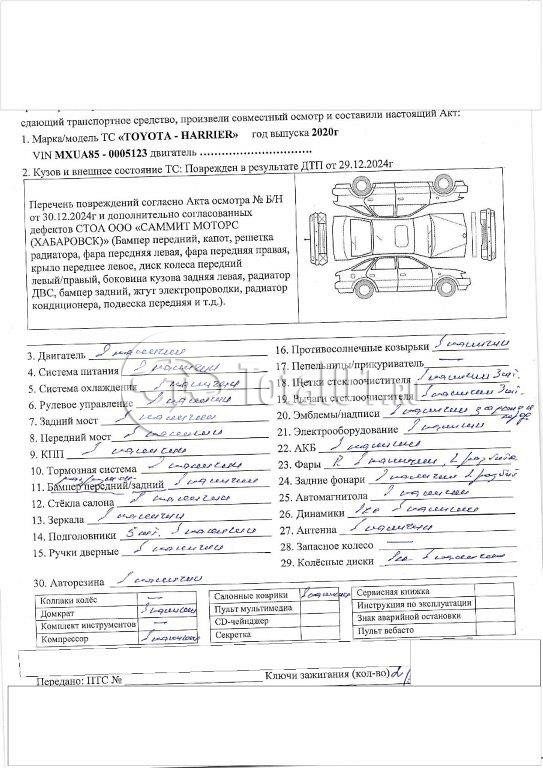 сдающий транспортное средство, произвели совместный осмотр и составили настоящий Акт:
1. Марка/модель ТС «TOYOTA - HARRIER» год выпуска 2020г
VIN MXUA85 - 0005123 двигатель ................................
2. Кузов и внешнее состояние ТС: Поврежден в результате ДТП от 29.12.2024г
Перечень повреждений согласно Акта осмотра № Б/Н
от 30.12.2024г и дополнительно согласованных
дефектов СТОА ООО «САММИТ МОТОРС
(ХАБАРОВСК)» (Бампер передний, капот, решетка
радиатора, фара передняя левая, фара передняя правая,
крыло переднее левое, диск колеса передний
левый/правый, боковина кузова задняя левая, радиатор
ДВС, бампер задний, жгут электропроводки, радиатор
кондиционера, подвеска передняя и т.д.).
3. Двигатель в наличии
4. Система питания в наличии
5. Система охлаждения в наличии
6. Рулевое управление в наличии
7. Задний мост в наличии
8. Передний мост в наличии
9. КПП в наличии
10. Тормозная система в наличии
11. Бампер передний/задний в наличии
12. Стёкла салона в наличии
13. Зеркала в наличии
14. Подголовники 5 шт. в наличии
15. Ручки дверные в наличии
16. Противосолнечные козырьки в наличии
17. Пепельница/прикуриватель —
18. Щетки стеклоочистителя в наличии 3 шт.
19. Рычаги стеклоочистителя в наличии 3 шт.
20. Эмблемы/надписи в наличии
21. Электрооборудование в наличии
22. АКБ в наличии
23. Фары 2 в наличии, 2 разбита
24. Задние фонари в наличии
25. Автомагнитола в наличии
26. Динамики в наличии
27. Антенна в наличии
28. Запасное колесо —
29. Колёсные диски в наличии
30. Авторезина в наличии
Колпаки колёс —
Домкрат в наличии
Комплект инструментов —
Компрессор в наличии
Салонные коврики в наличии
Пульт мультимедиа
CD-чейнджер
Секретка
Сервисная книжка
Инструкция по эксплуатации
Знак аварийной остановки
Пульт вебасто
Передано: ПТС № Ключи зажигания (кол-во) 2